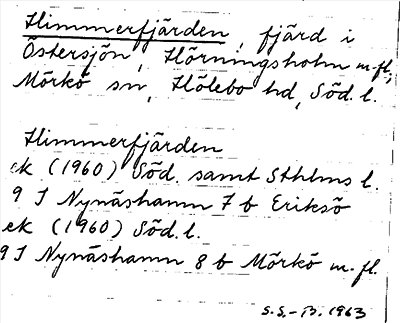 Himmerfjärden, fjärd i
Östersjön, Hörningsholm m.fl.,
Mörkö sn, Hölebo hd, Söd. l.
Himmerfjärden
ek (1960) Söd. samt Sthlms l.
9 I Nynäshamn 7 b Eriksö
ek (1960) Söd. l.
9 I Nynäshamn 8 b Mörkö m. fl.
S.S.-B. 1963